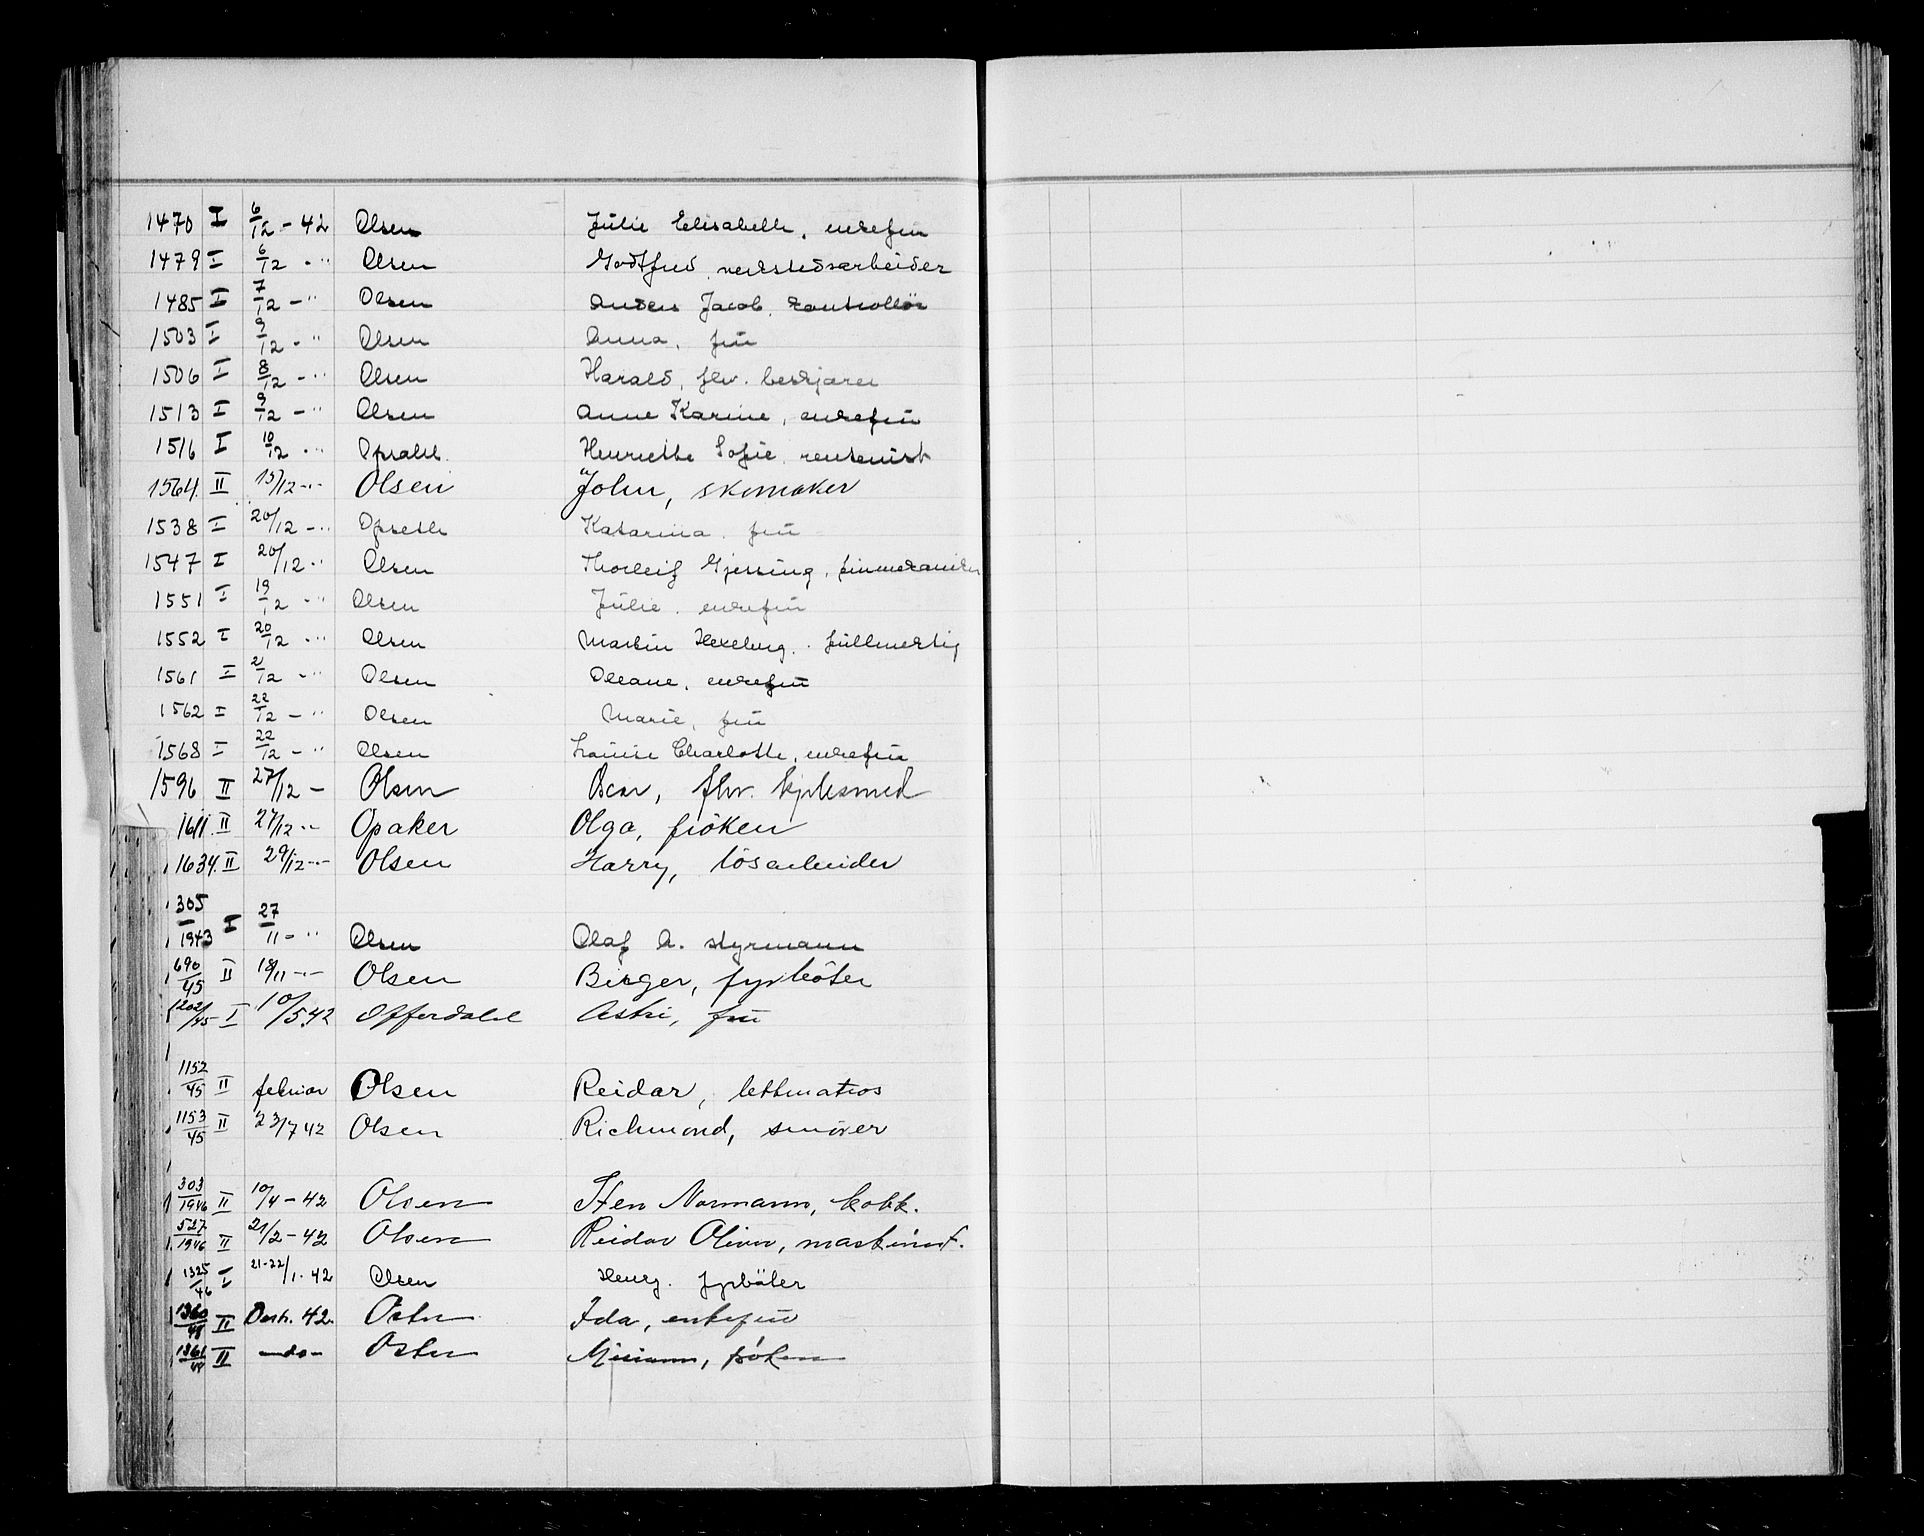 1470 I 6/12 - 42 Olsen Julie Elisabeth, enkefru
1479 I 6/12 - " Olsen Godtfred verkstedsarbeider
1485 I 7/12 - " Olsen Anders Jacob, kontrollør
1503 I 9/12 - " Olsen Anna, frü
1506 I 8/12 - " Olsen Harald, fhv. beskjærer
1513 I 9/12 - " Olsen Anne Karine, enkefrü
1516 I 10/12 - " Opsahl Henriette Sofie rentenist
1564. II 15/12 -"- Olsen John, skomaker
1538 I 20/12 - " Opseth Katarina frü
1547 I 20/12 - " Olsen Thorleif Gjessing, finmekaniker
1551 I 19/12 - " Olsen Julie. enkefrü
1552 I 20/12 - " Olsen Martin fullmektig
1561 I 2/12 - " Olsen Oleane, enkefrü
1562 I 22/12 - " Olsen Marie, frü
1568 I 22/12 - " Olsen Louise Charlotte, enkefrü
1596 II 27/12 - Olsen Oscar, fhv. kjelesmed
1611. II 27/12 -"- Opaker Olga, frøken
1634. II 29/12 -"- Olsen Harry, løsarbeider
305/1943 I 27/11 - " Olsen Olaf A. styrmann
690/45 II 18/11 -"- Olsen Birger, fyrbøter
1202/45 I 10/5 42 Offerdahl Astri, frü
1152/45 II februar Olsen Reidar, lettmatros
1153/45 II 23/7 42 Olsen Richmond, smører
303/1946 II 10/4 - 42 Olsen Sten Normann, kokk.
527/1946 II 21/2 - 42 Olsen Reidar Oliver, maskinist.
1325/46 I 21-22/1 - 42 Olsen Henry. fyrbøter
1360/48 II 42. Oster Ida, enkefrü
1361/48 II -do- Oster Miriam, frøken